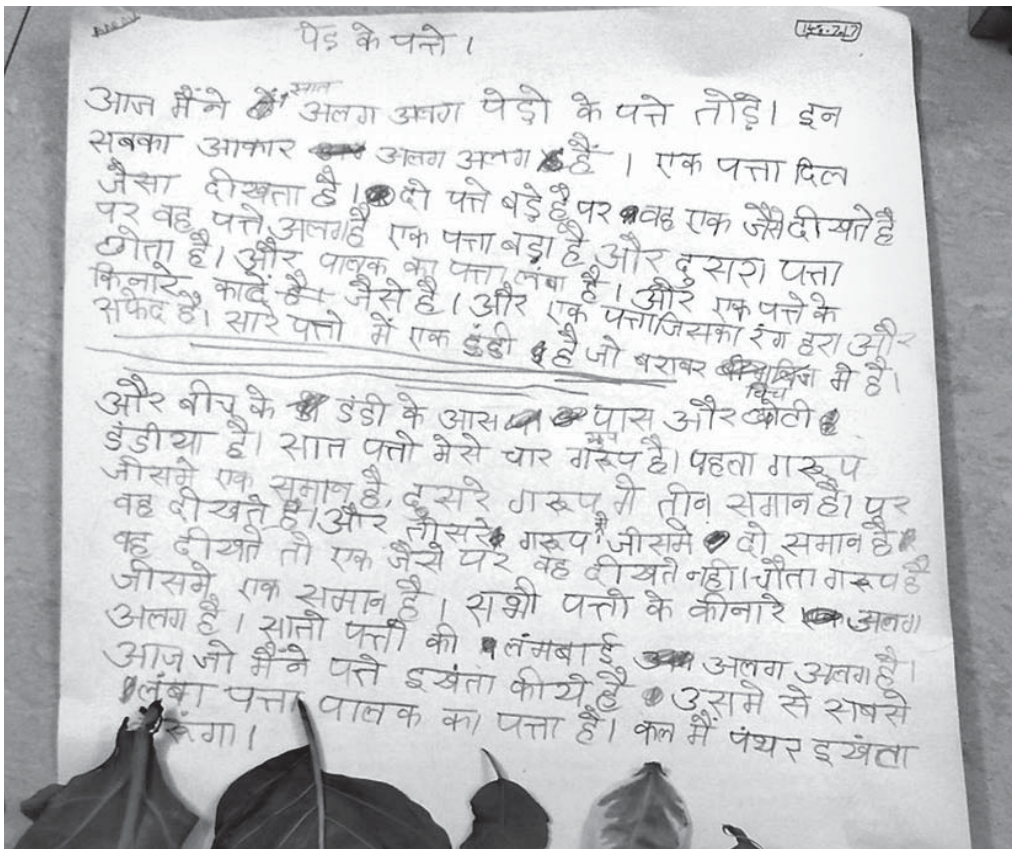 पेड़ के पत्ते ।
आज मैंने सात अलग अलग पेड़ो के पत्ते तोड़े। इन
सबका आकार अलग अलग है । एक पत्ता दिल
जैसा दीखता है। दो पत्ते बड़े है पर वह एक जैसे दीखते है
पर वह पत्ते अलग है एक पत्ता बड़ा है और दुसरा पत्ता
छोता है। और पालक का पत्ता लंबा है। और एक पत्ते के
किनारे काटें जैसे है। और एक पत्ता जिसका रंग हरा और
सफेद है। सारे पत्तो में एक डंडी है जो बराबर बिच मे है।
और बीच के डंडी के आस पास और छोटी
डंडीया है। सात पत्तो मेसे चार गरूप है। पहला गरूप
जीसमे एक समान है, दुसरे गरूप मे तीन समान है। पर
वह दीखते है। और तीसरे गरूप है जीसमे दो समान है
वह दीखते तो एक जैसे पर वह दीखते नही। चौता गरूप है
जीसमे एक समान है। सभी पत्तो के कीनारे अलग
अलग है। सातो पत्तो की लंमबाई अलग अलग है।
आज जो मैंने पत्ते इखंता कीये है उसमे से सबसे
लंबा पत्ता पालक का पत्ता है। कल मैं पंथर इखंता
रूंगा।